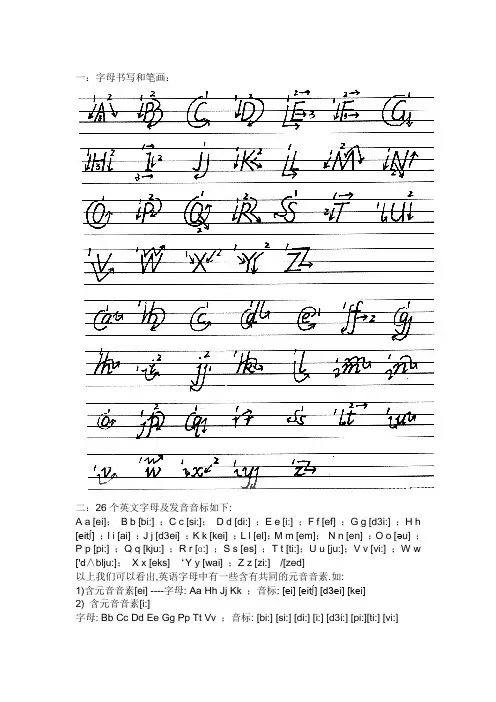 一：字母书写和笔画：
A B C D E F G
H I J K L M N
O P Q R S T U
V W X Y Z
a b c d e f g
h i j k l m n
o p q r s t u
v w x y z
二：26 个英文字母及发音音标如下:
A a [ei]； B b [bi:] ；C c [si:]； D d [di:] ；E e [i:] ；F f [ef] ；G g [d3i:] ；H h
[eit∫] ；I i [ai] ；J j [d3ei] ；K k [kei] ；L l [el]；M m [em]； N n [en] ；O o [əu] ；
P p [pi:] ；Q q [kju:] ；R r [ɑ:] ；S s [es] ；T t [ti:]；U u [ju:]；V v [vi:] ；W w
['d∧blju:]； X x [eks] 'Y y [wai] ；Z z [zi:] /[zed]
以上我们可以看出,英语字母中有一些含有共同的元音音素.如:
1)含元音音素[ei] ----字母: Aa Hh Jj Kk ；音标: [ei] [eit∫] [d3ei] [kei]
2) 含元音音素[i:]
字母: Bb Cc Dd Ee Gg Pp Tt Vv ；音标: [bi:] [si:] [di:] [i:] [d3i:] [pi:][ti:] [vi:]